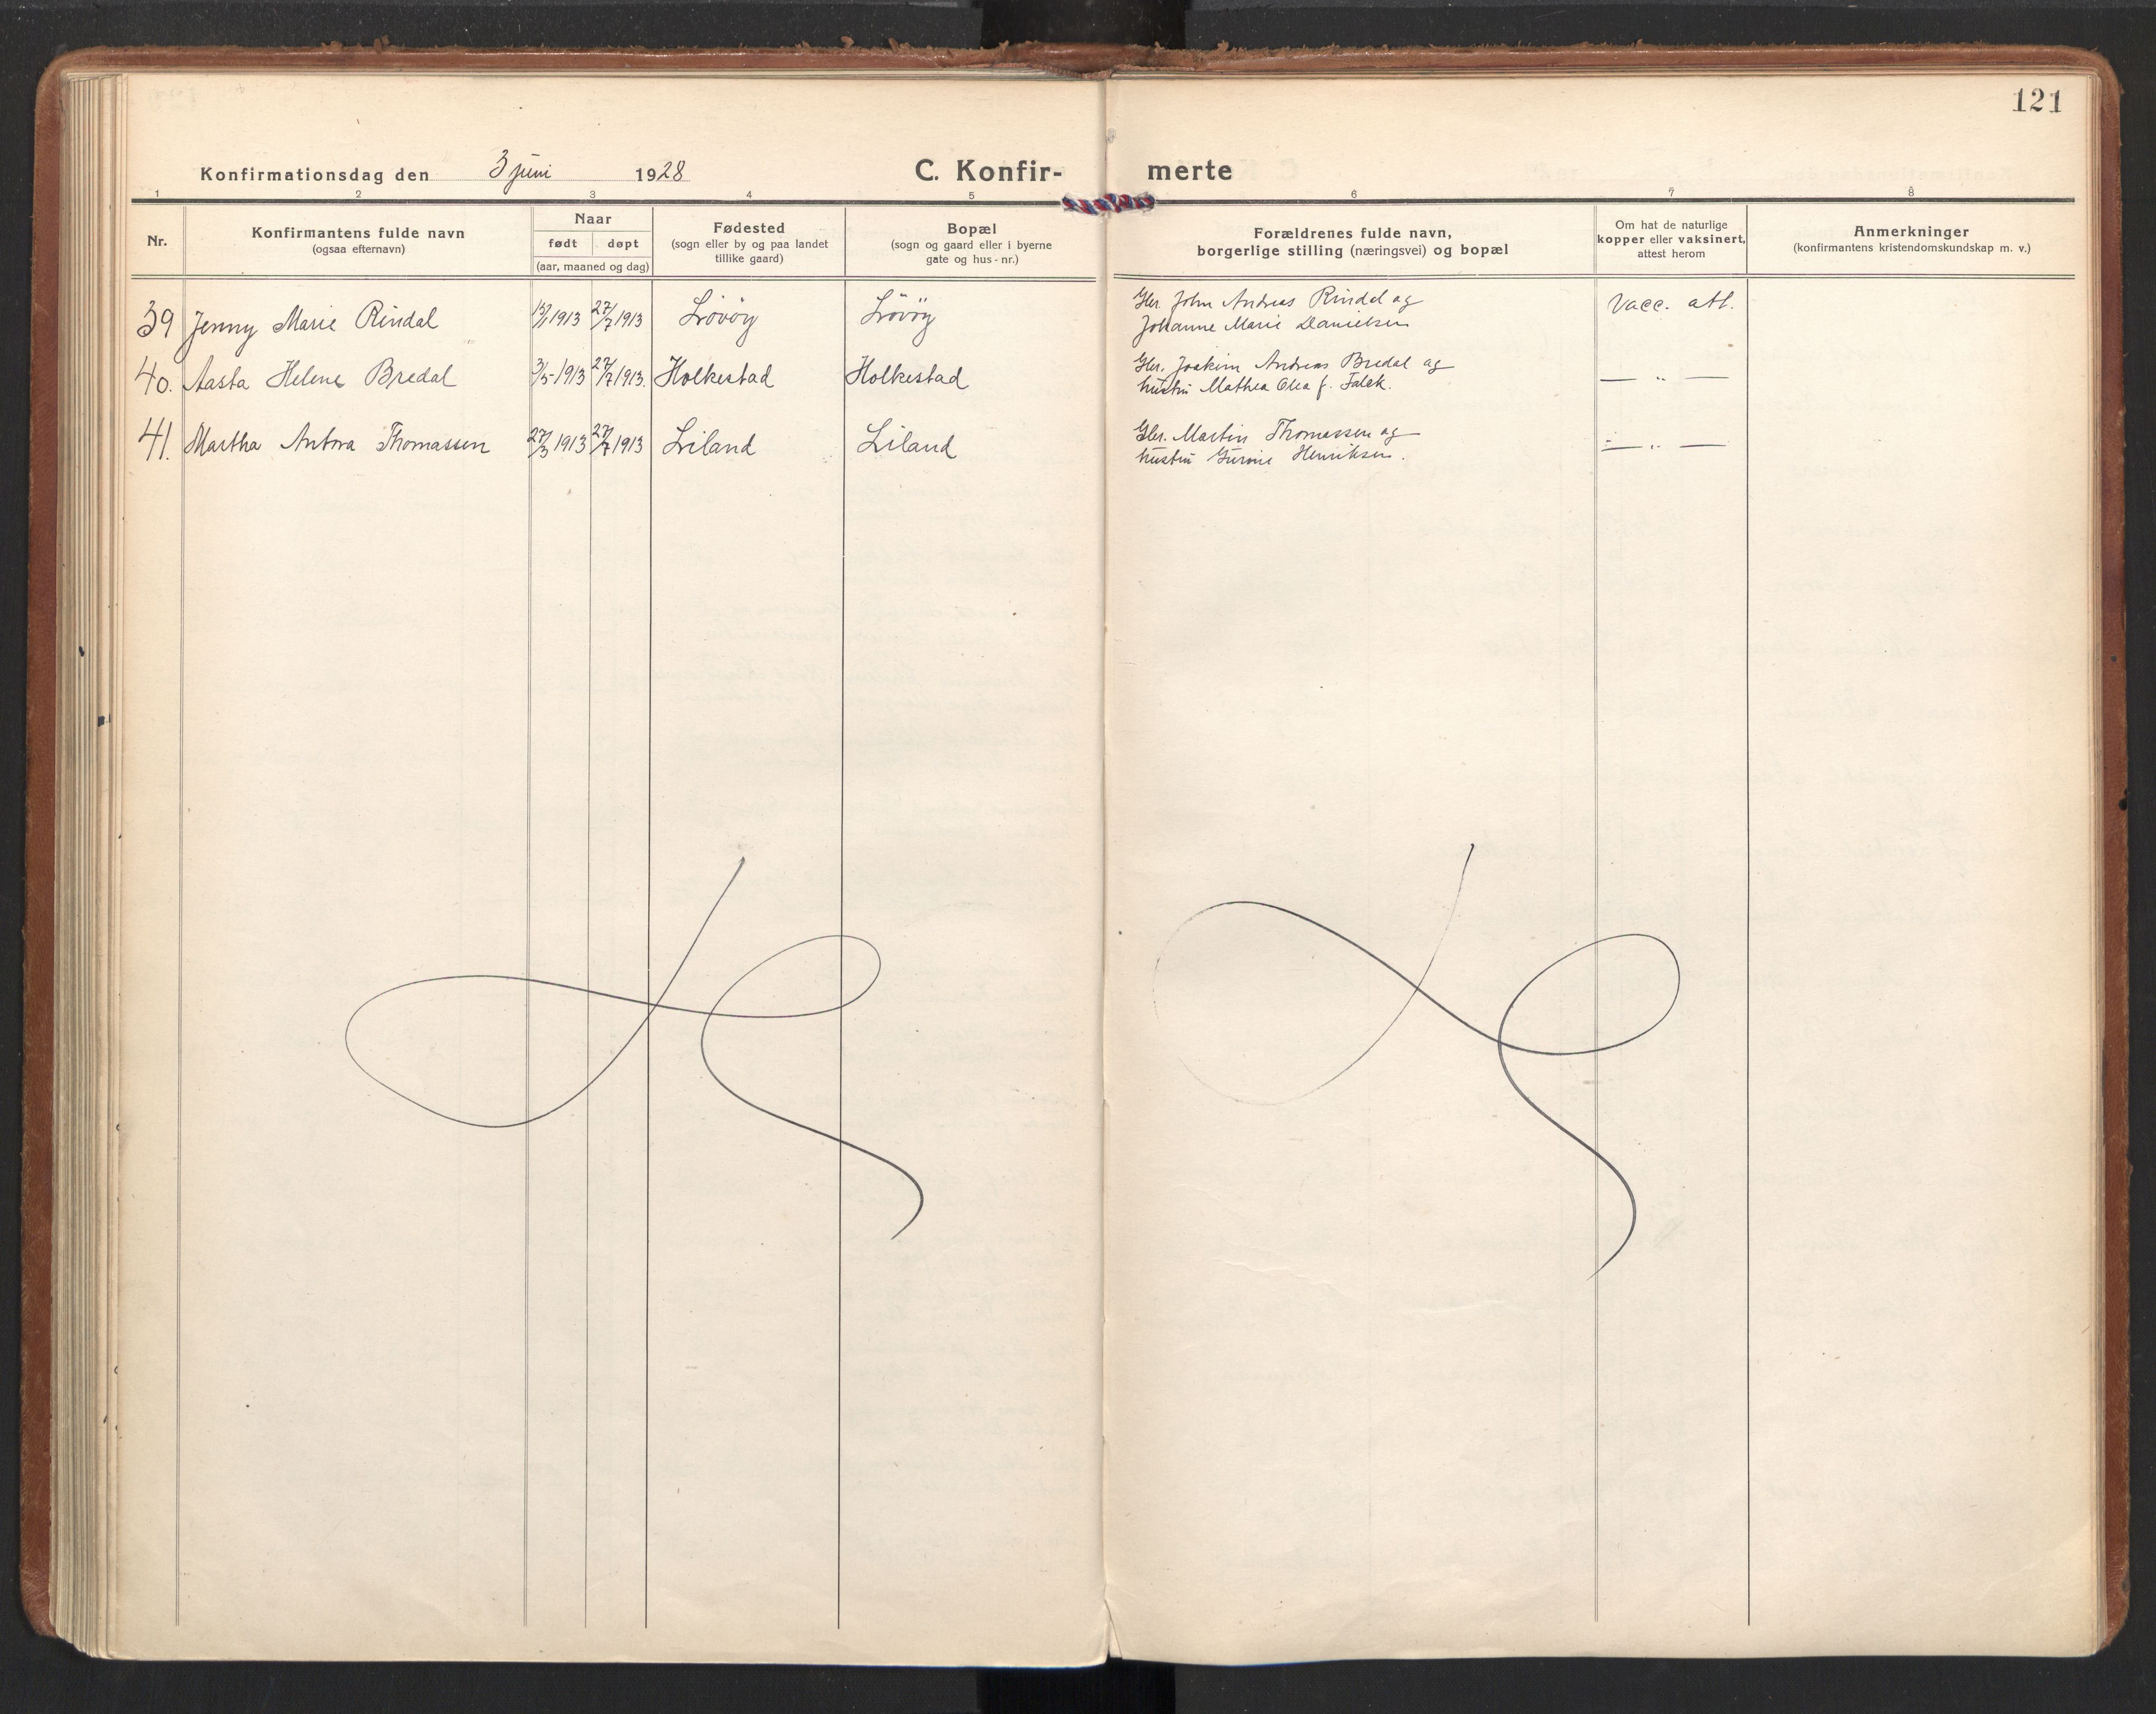 121
Konfirmationsdag den 3 juni 1928
C. Konfir- merte
1 2 3 4 5 6 7 8
Nr.
Konfirmantens fulde navn
(ogsaa efternavn)
Naar
født døpt
(aar, maaned og dag)
Fødested
(sogn eller by og paa landet
tillike gaard)
Bopæl
(sogn og gaard eller i byerne
gate og hus-nr.)
Forældrenes fulde navn,
borgerlige stilling (næringsvei) og bopæl
Om hat de naturlige
kopper eller vaksinert,
attest herom
Anmerkninger
(konfirmantens kristendomskundskap m. v.)
39 Jenny Marie Rindal 15/1 1913 27/7 1913 Løvöy Løvöy
Gbr. John Andreas Rindal og
Johanne Marie Danielsen
Vacc. att.
40. Aasta Helene Bredal 3/5-1913 27/7 1913. Holkestad Holkestad
Gbr. Joakim Andreas Bredal og
hustru Mathea Olea f. Falck.
— " —
41. Martha Antora Thomassen 27/3 1913 27/7 1913 Liland Liland
Gbr. Martin Thomassen og
hustru Henriksen.
— " —